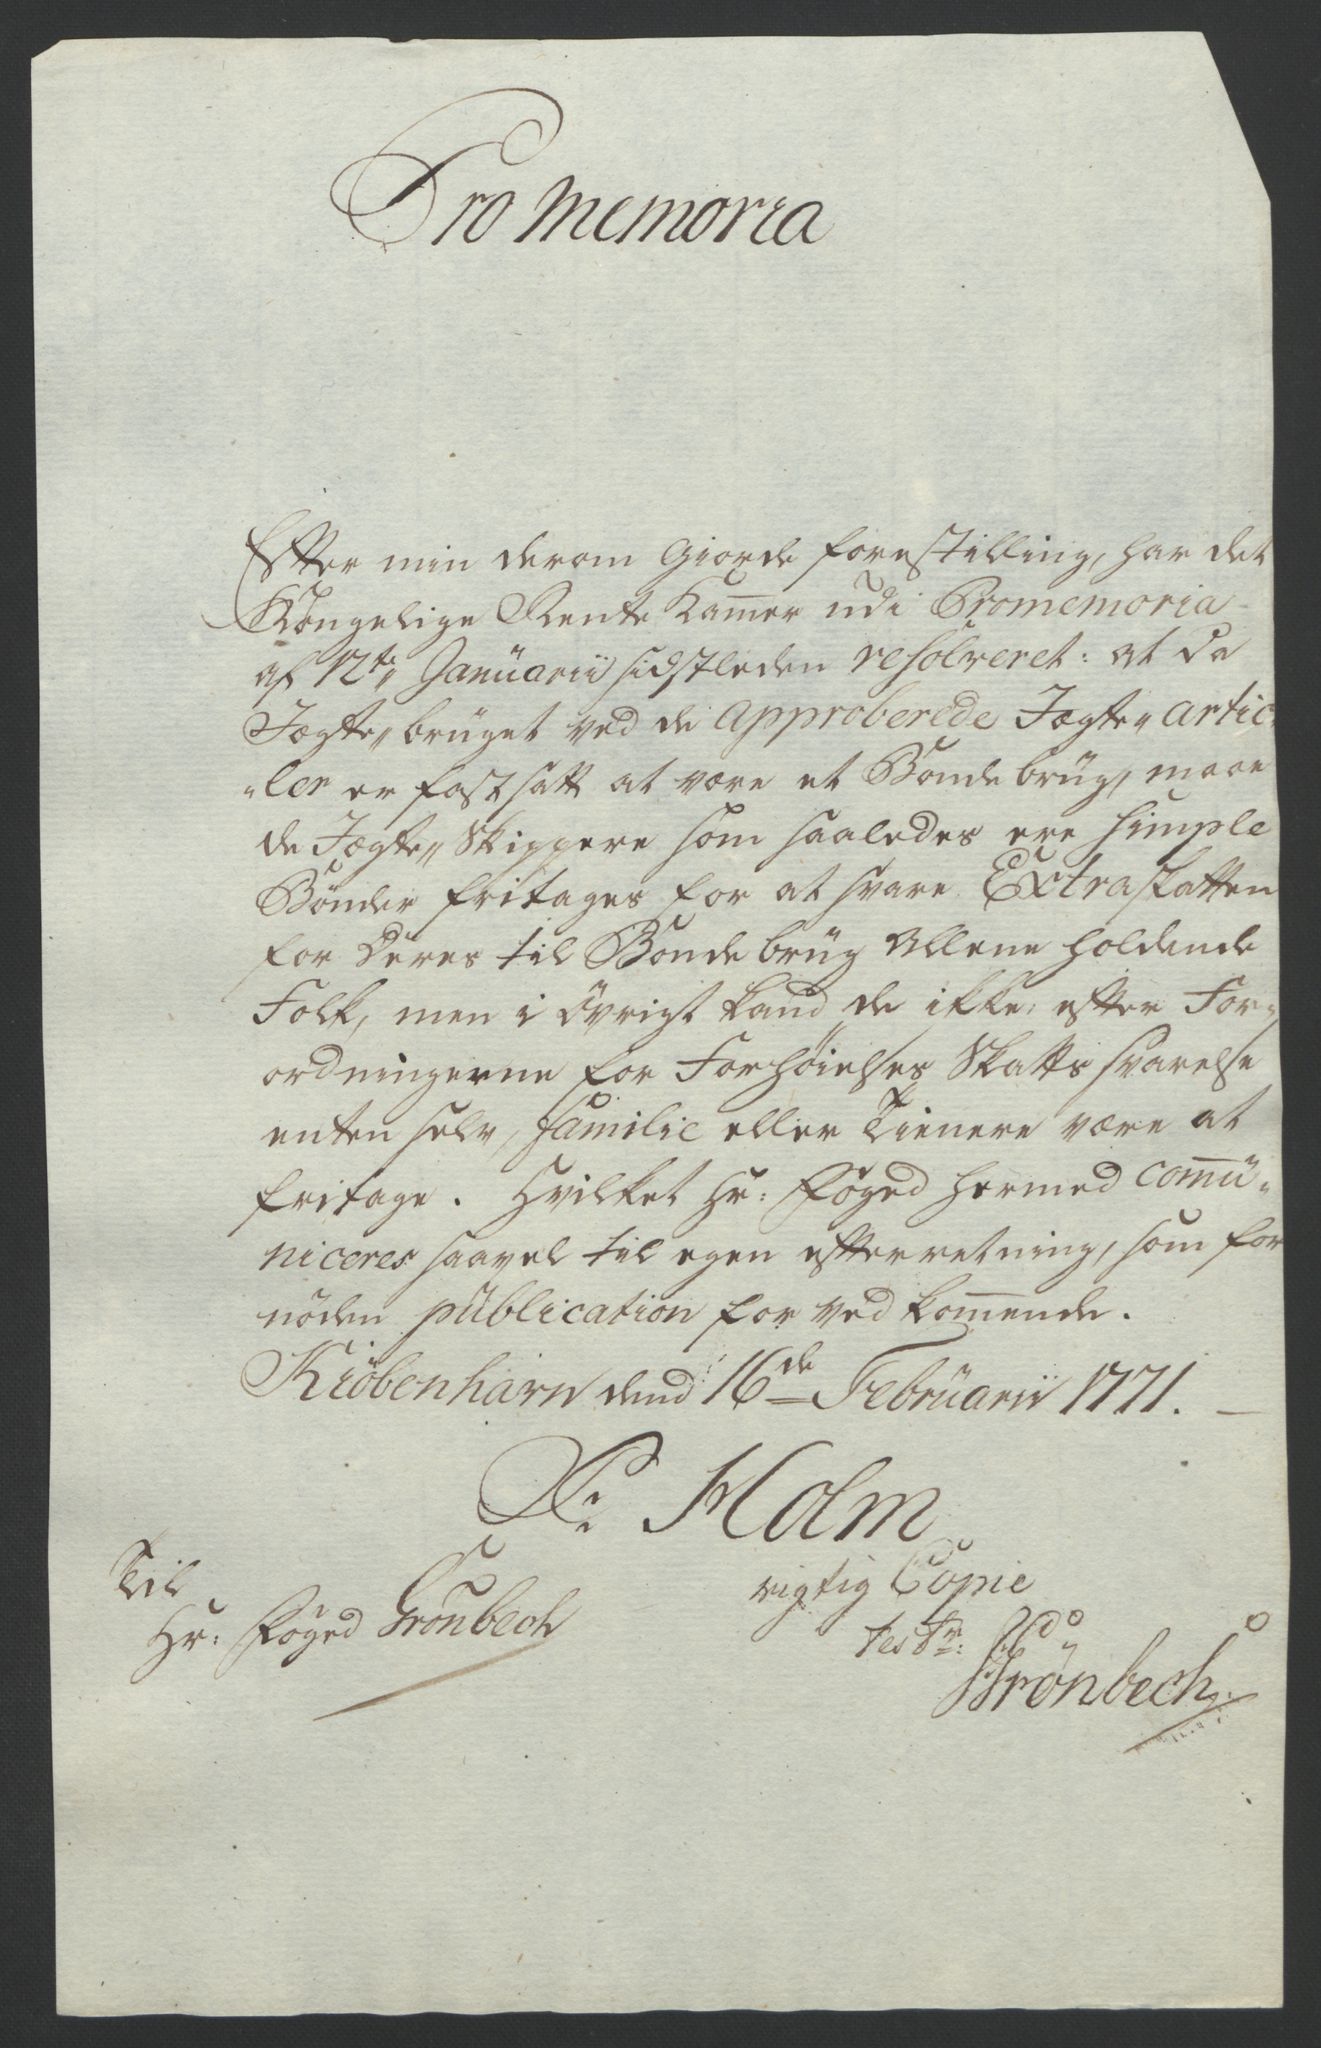 Pro Memoria
Efter min derom Giorde forestilling, har det
Kongelige Rente Kam̅er udi Promemoria
af 12te Januarii sidstleden resolveret: at da
Jægte„bruget ved de approberede Jægte„artic-
„ler er fastsatt at være et Bondebrug, maae
de Jægte„Skippere som saaledes ere simple
Bønder fritages for at svare Extraskatten
for deres til Bondebrug allene holdende
Folk, men i øvrigt kand de ikke, efter For-
ordningerne for Forhøielses Skatts svarelse
enten selv, familie eller Tienere være at
fritage. Hvilket Hr: Foged hermed com̅u-
niceres saavel til egen efterretning, som for
nøden publication for ved kom̅ende.
Kiöbenhavn dend 16de Februarii 1771.
Holm
Til
Hr: Foged Grönbech
rigtig Copie
test:
Grönbech